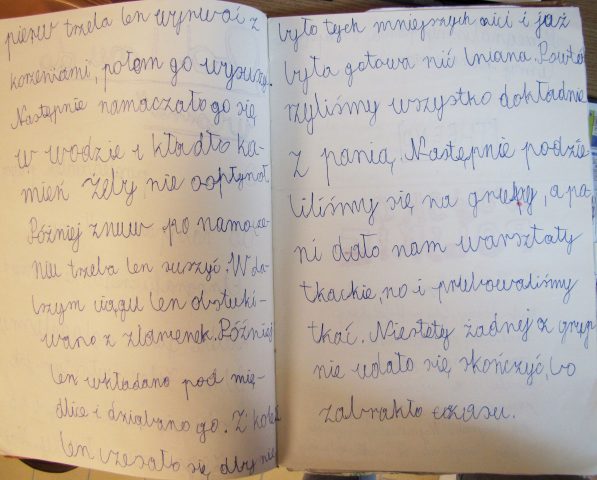 pierw trzeba len wyrwać z
korzeniami, potom go wysuszyć.
Następnie namaczało go się
w wodzie i kładło ka-
mień żeby nie odpłynoł.
Później znuw po namocze-
niu trzeba len suszyć. W da-
lszym ciągu len obstuki-
wano z źdźbełek. Później
len wkładano pod mię-
dlice i dziabano go. Z kolei
len czesało się aby nie
było tych mniejszych nici i już
była gotowa nić lniana. Powtó-
rzyliśmy wszystko dokładnie
z panią. Następnie podzie
liliśmy się na grupy, a pa
ni dało nam warsztaty
tkackie, no i próbowaliśmy
tkać. Niestety żadnej z grup
nie udało się skończyć, bo
zabrakło czasu.